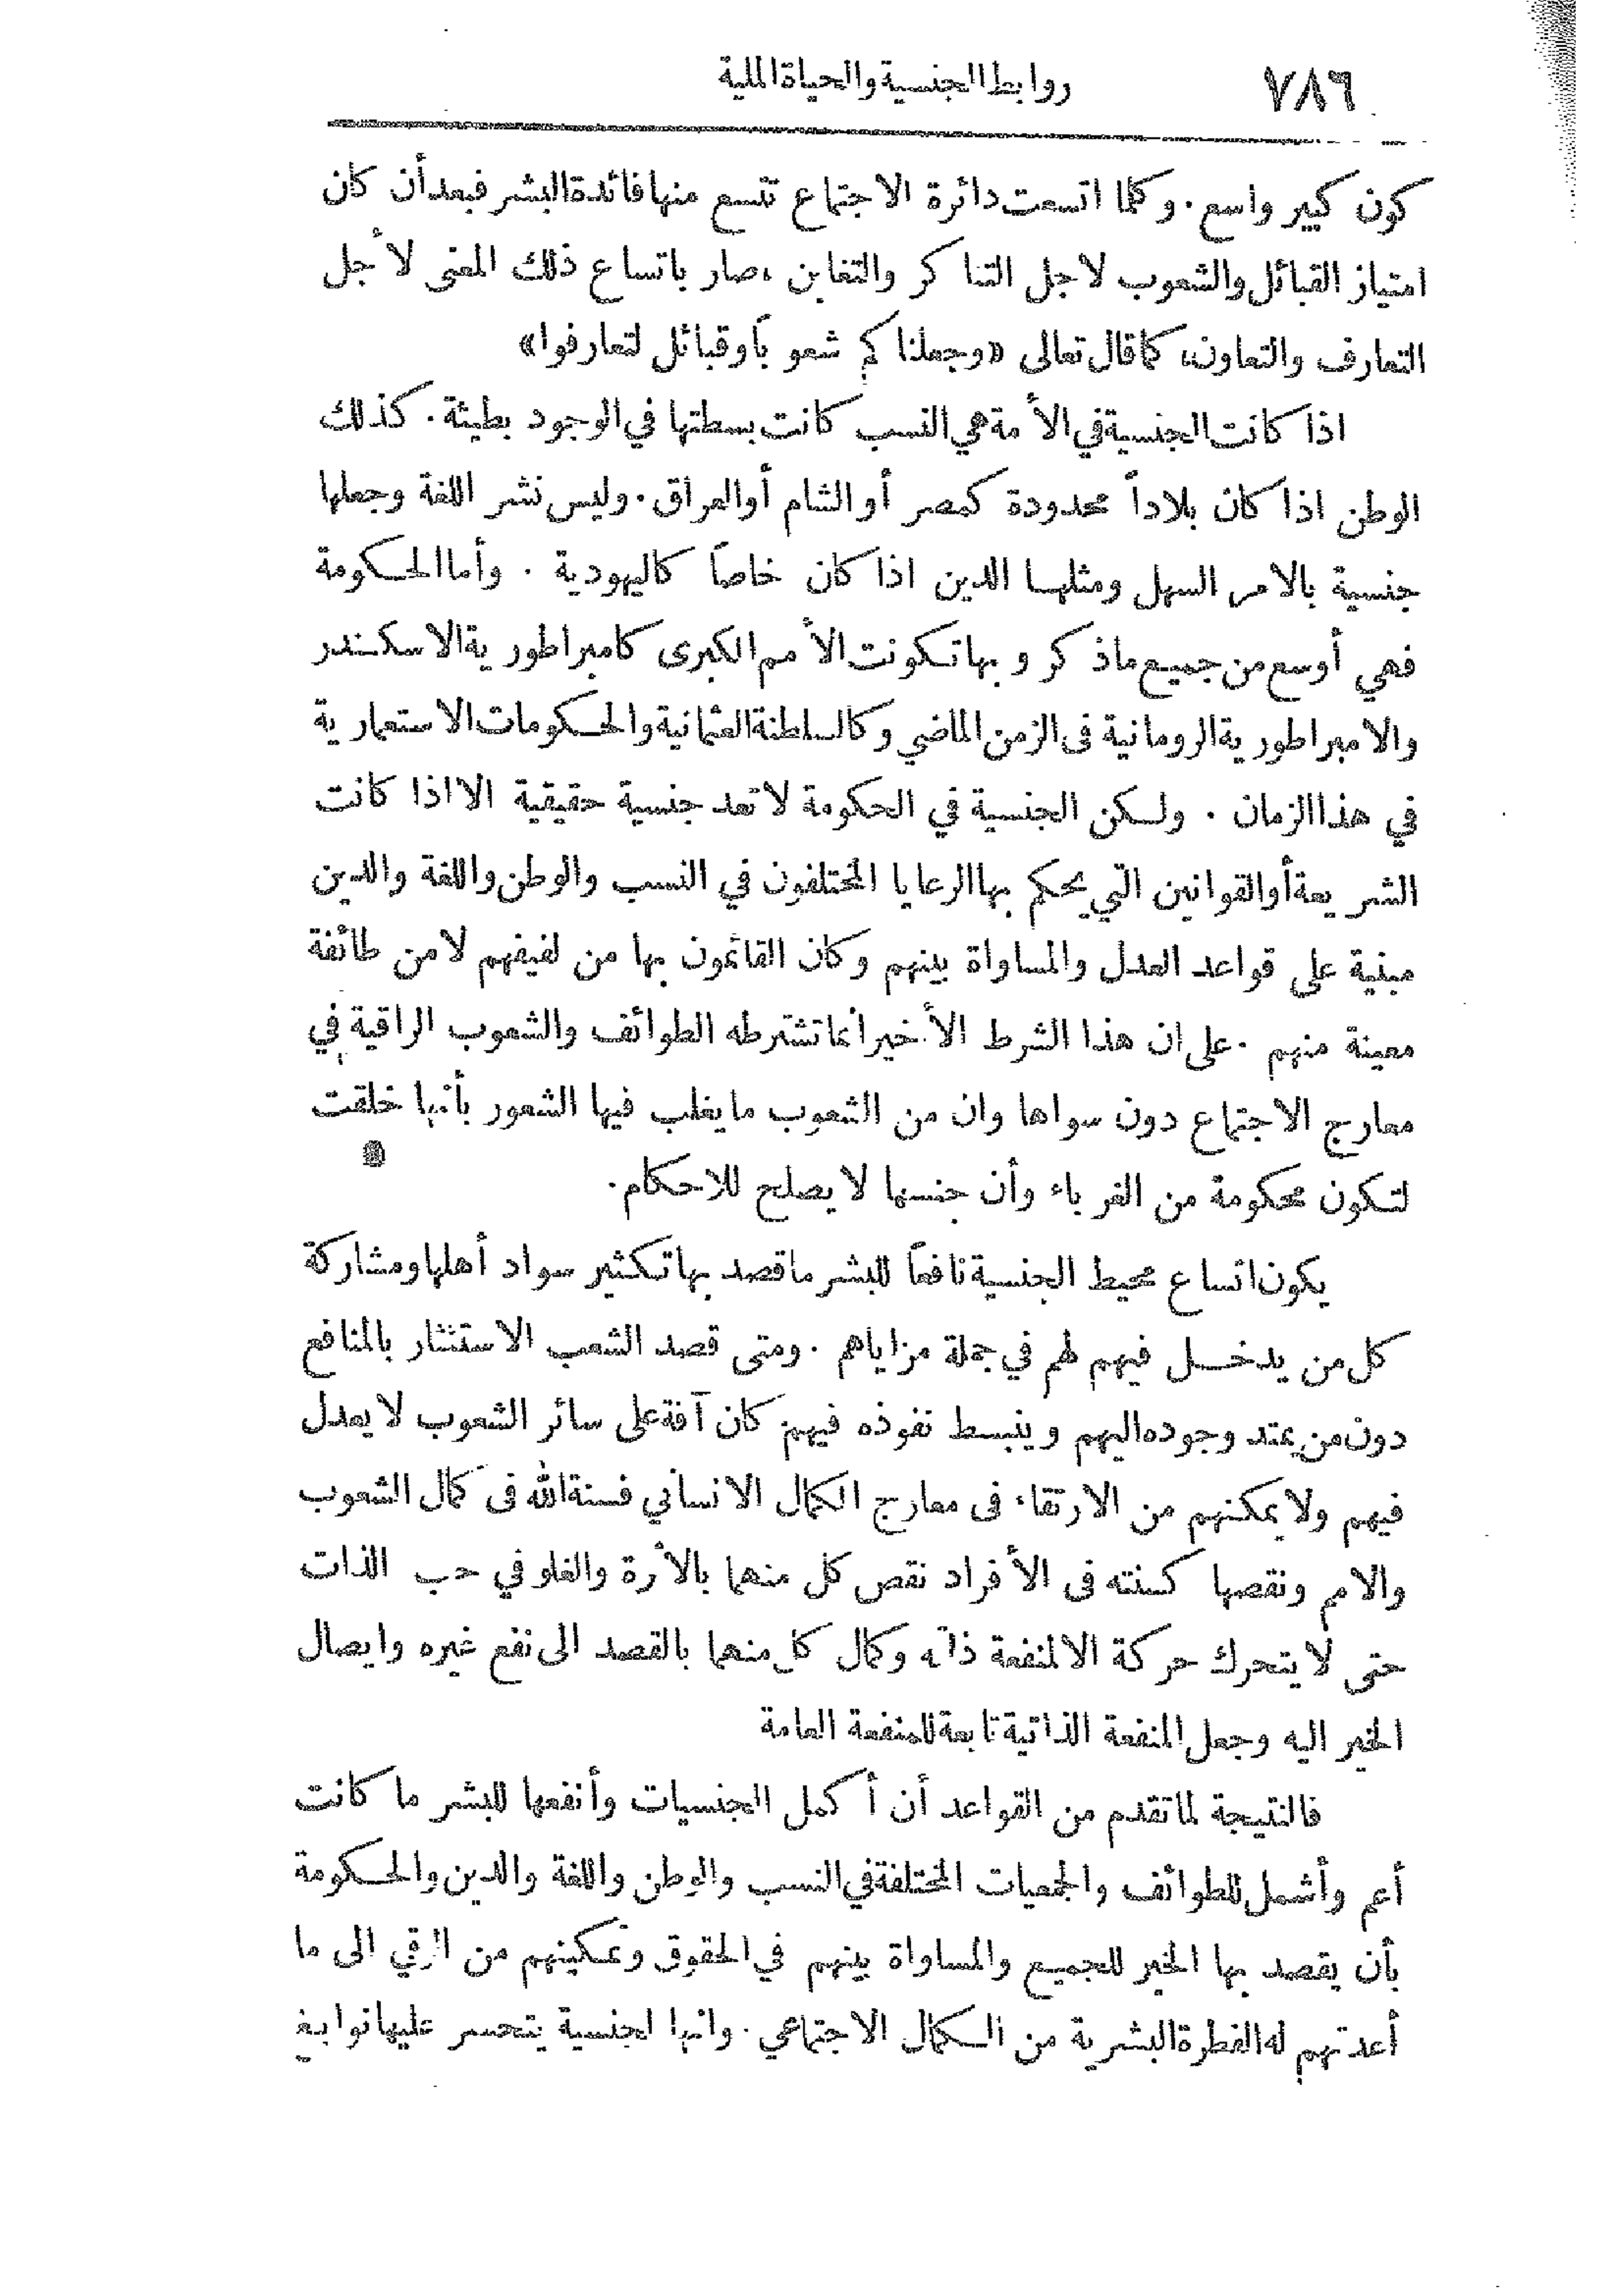 ٧٨٦ روابط الجنسية والحياة الملية
كون كبير واسع. وكلما اتسعت دائرة الاجتماع تتسع منها فائدة البشر فبعد أن كان
امتياز القبائل والشعوب لاجل التناكر والتغابن، صار باتساع ذلك المعنى لأجل
التعارف والتعاون، كما قال تعالى «وجعلناكم شعوباً وقبائل لتعارفوا»
اذا كانت الجنسية في الأمة هي النسب كانت بسطتها في الوجود بطيئة. كذلك
الوطن اذا كان بلاداً محدودة كمصر أو الشام أو العراق. وليس نشر اللغة وجعلها
جنسية بالامر السهل ومثلها الدين اذا كان خاصاً كاليهودية. وأما الحكومة
فهي أوسع من جميع ما ذكر وبها تكونت الأمم الكبرى كامبراطورية الاسكندر
والامبراطورية الرومانية فى الزمن الماضي وكالسلطنة العثمانية والحكومات الاستعمارية
في هذا الزمان. ولكن الجنسية في الحكومة لا تعد جنسية حقيقية الا اذا كانت
الشريعة أو القوانين التي يحكم بها الرعايا المختلفون في النسب والوطن واللغة والدين
مبنية على قواعد العدل والمساواة بينهم وكان القائمون بها من لفيفهم لا من طائفة
معينة منهم. على ان هذا الشرط الأخير انما تشترطه الطوائف والشعوب الراقية في
معارج الاجتماع دون سواها وان من الشعوب ما يغلب فيها الشعور بأنها خلقت
لتكون محكومة من الغرباء وأن جنسها لا يصلح للاحكام.
يكون اتساع محيط الجنسية نافعاً للبشر ما قصد بها تكثير سواد أهلها ومشاركة
كل من يدخل فيهم لهم في جملة مزاياهم. ومتى قصد الشعب الاستئثار بالمنافع
دون من يمتد وجوده اليهم وينبسط نفوذه فيهم كان آفة على سائر الشعوب لا يعدل
فيهم ولا يمكنهم من الارتقاء فى معارج الكمال الانساني فسنة الله فى كمال الشعوب
والامم ونقصها كسنته فى الأفراد نقص كل منهما بالأثرة والغلو في حب الذات
حتى لا يتحرك حركة الا لمنفعة ذاته وكمال كل منهما بالقصد الى نفع غيره وايصال
الخير اليه وجعل المنفعة الذاتية تابعة للمنفعة العامة
فالنتيجة لما تقدم من القواعد أن أكمل الجنسيات وأنفعها للبشر ما كانت
أعم وأشمل للطوائف والجمعيات المختلفة في النسب والوطن واللغة والدين والحكومة
بأن يقصد بها الخير للجميع والمساواة بينهم في الحقوق وتمكينهم من الرقي الى ما
أعدتهم له الفطرة البشرية من الكمال الاجتماعي. وانها لجنسية يتحسر عليها نوابغ